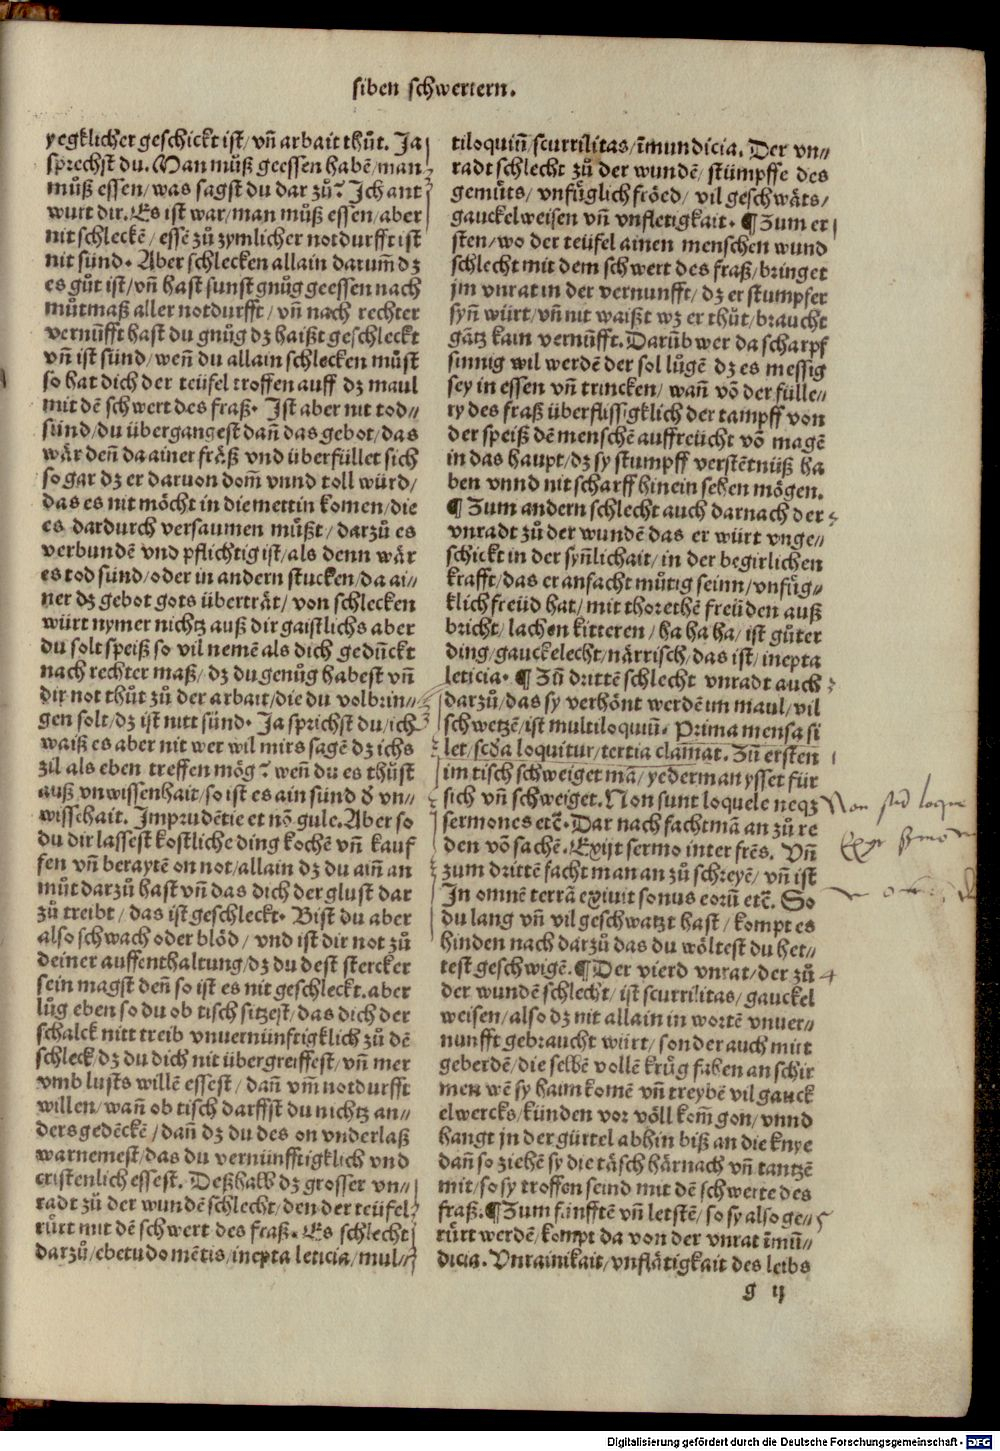 siben schwertern.
yegklicher geschickt ist/ vñ arbait thůt. Ja
sprechst du. Man můß geessen habē/ man
můß essen/ was sagst du dar zů? Ich ant
wurt dir. Es ist war/ man můß essen/ aber
nit schleckē/ essē zů zymlicher notdurfft ist
nit sünd. Aber schlecken allain darum̄ dz
es gůt ist/ vñ hast sunst gnůg geessen nach
můtmaß aller notdurfft/ vñ nach rechter
vernūfft hast du gnůg dz haißt geschleckt
vñ ist sünd/ weñ du allain schlecken můst
so hat dich der teüfel troffen auff dz maul
mit dē schwert des fraß. Ist aber nit tod⸗
sünd/ du übergangest dañ das gebot/ das
wår deñ da ainer fråß vnd überfüllet sich
so gar dz er daruon dom̄ vnnd toll würd/
das es nit möcht in die mettin komen/ die
es dardurch versaumen můßt/ darzů es
verbundē vnd pflichtig ist/ als denn wår
es tod sünd/ oder in andern stucken/ da ai⸗
ner dz gebot gots überträt/ von schlecken
würt nymer nichtz auß dir gaistlichs aber
du solt speiß so vil nemē als dich gedūckt
nach rechter maß/ dz du genůg habest vñ
dir not thůt zů der arbait/ die du volbrin⸗
gen solt/ dz ist nitt sünd. Ja sprichst du/ ich
waiß es aber nit wer wil mirs sagē dz ichs
zil als eben treffen mög? weñ du es thůst
auß vnwissenhait/ so ist es ain sünd d̕ vn⸗
wissēhait. Imprudētie et nō gule. Aber so
du dir lassest kostliche ding kochē vñ kauf
fen vñ beraytē on not/ allain dz du aiñ an
můt darzů hast vñ das dich der glust dar
zů treibt/ das ist geschleckt. Bist du aber
also schwach oder blöd/ vnd ist dir not zů
deiner auffenthaltung/ dz du dest stercker
sein magst deñ so ist es nit geschleckt. aber
lůg eben so du ob tisch sitzest/ das dich der
schalck nitt treib vnuernünftigklich zů dē
schleck/ dz du dich nit übergreiffest/ vñ mer
vmb lusts willē essest/ dañ vm̄ notdurfft
willen/ wañ ob tisch darffst du nichtz an⸗
ders gedēckē/ dañ dz du des on vnderlaß
warnemest/ das du vernünfftigklich vnd
cristenlich essest. Deßhalb dz grosser vn⸗
radt zů der wundē schlecht/ den der teüfel
růrt mit dē schwert des fraß. Es schlecht
darzů/ ebetudo mētis/ inepta leticia/ mul⸗
tiloquiū/ scurrilitas/ īmundicia. Der vn⸗
radt schlecht zů der wundē/ stümpffe des
gemůts/ vnfůglich fröed/ vil geschwåts/
gauckelweisen vñ vnfletigkait. ¶ Zum er
sten/ wo der teüfel ainen menschen wund
schlecht mit dem schwert des fraß/ bringet
jm vnrat in der vernunfft/ dz er stumpfer
syñ würt/ vñ nit waißt wz er thůt/ braucht
gātz kain vernūfft. Darūb wer da scharpf
sinnig wil werdē der sol lůgē dz es messig
sey in essen vñ trincken/ wañ vō der fülle⸗
ry des fraß überflissigklich der tampff von
der speiß dē menschē auffreücht vō magē
in das haupt/ dz sy stumpff verstētnüß ha
ben vnnd nit scharff hinein sehen mögen.
¶ Zum andern schlecht auch darnach der
vnradt zů der wundē das er würt vnge⸗
schickt in der syñlichait/ in der begirlichen
krafft/ das er anfacht můtig seinn/ vnfůg⸗
klich freüd hat/ mit thorethē freüden auß
bricht/ lachen kitteren/ ha ha ha/ ist gůter
ding/ gauckelecht/ nårrisch/ das ist/ inepta
leticia. ¶ Zū drittē schlecht vnradt auch
darzů/ das sy verhönt werdē im maul/ vil
schwetzē/ ist multiloquiū. Prima mensa si
let/ scd̕a loquitur/ tertia clam̄at. Zū ersten
im tisch schweiget mā/ yederman ysset für
sich vñ schweiget. Non sunt loquele neqz
sermones etc̄. Dar nach facht mā an zů re
den vō sachē. Exijt sermo inter frēs. Vñ
zum drittē facht man an zů schreyē/ vñ ist
In omnē terrā exiuit sonus eorū etc̄. So
du lang vñ vil geschwatzt hast/ kompt es
hinden nach darzů das du wöltest du het⸗
test geschwigē. ¶ Der vierd vnrat/ der zů
der wundē schlecht/ ist scurrilitas/ gauckel
weisen/ also dz nit allain in wortē vnuer⸗
nunfft gebraucht würt/ sonder auch mitt
geberdē/ die selbē vollē krůg fahen an schir
men wē sy haim komē vñ treybē vil gauck
elwercks/ künden vor völl kom̄ gon/ vnnd
hangt jn der gürtel abhin biß an die knye
dañ so ziehē sy die täsch hårnach vñ tantzē
mit/ so sy troffen seind mit dē schwerte des
fraß. ¶ Zum finfftē vñ letstē/ so sy also ge⸗
růrt werdē/ kompt da von der vnrat īmū⸗
dicia. Vnrainikait/ vnflåtigkait des leibs
g ij
Digitalisierung gefördert durch die Deutsche Forschungsgemeinschaft - DFG